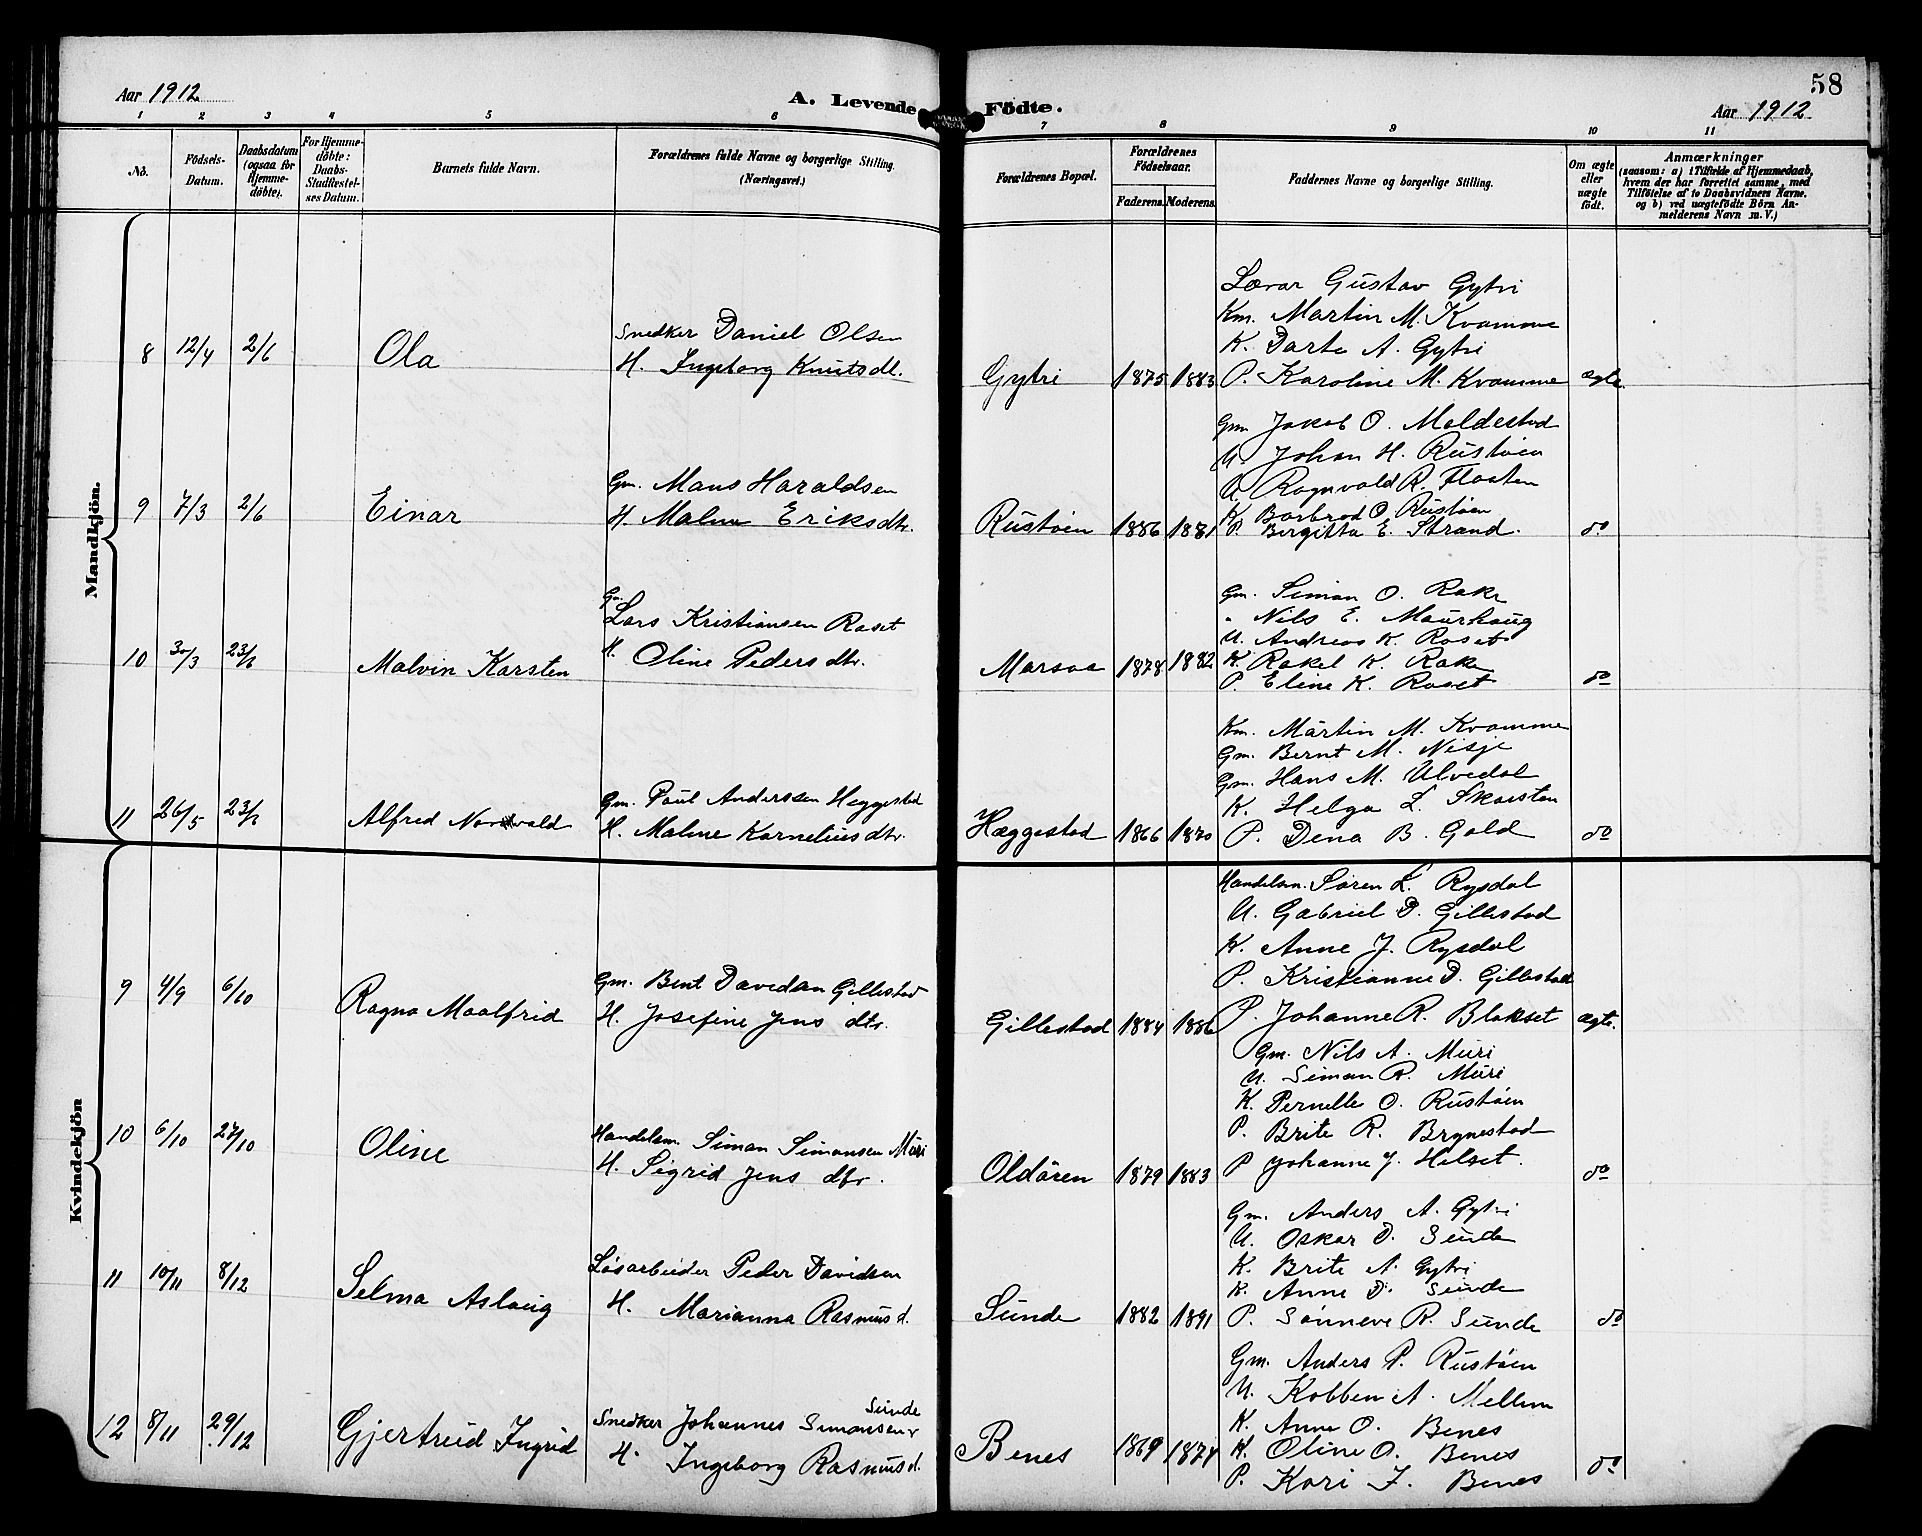 58
Aar 1912
A. Levende Födte.
Aar 1912
1 2 3 4 5 6 7 8 9 10 11
No.
Födsels-Datum.
Daabsdatum (ogsaa for Hjemme-döbte).
For Hjemme-döbte: Daabs-Stadfæstel-ses Datum.
Barnets fulde Navn.
Forældrenes fulde Navne og borgerlige Stilling. (Næringsvei.)
Forældrenes Bopæl.
Forældrenes Födselsaar.
Faderens. Moderens.
Faddernes Navne og borgerlige Stilling.
Om ægte eller uægte födt.
Anmærkninger
(saasom: a) i Tilfælde af Hjemmedaab,
hvem der har forrettet samme, med
Tilföielse af to Daabsvidners Navne.
og b) ved uægtefödte Börn An-
melderens Navn m. V.)
Mandkjön.
8 12/4 2/6 Ola
Snedker Daniel Olsen
H. Ingeborg Knutsdt.
Gytri 1875 1883
Lærar Gustav Gytri
Km. Martin M. Kvamme
K. Darte A. Gytri
P. Karoline M. Kvamme ægte
9 7/3 2/6 Einar
Gm. Mons Haraldsen
H. Malene Eriksdtr.
Rustøen 1886 1881
Gm Jakob O. Meldestad
U. Johan H. Rustøen
U. Ragnvald R. Floten
K. Barbrod O. Rustøen
P. Bergitta E. Strand. do
10 30/3 23/6 Malvin Karsten
Gm. Lars Kristiansen Roset
H. Oline Pedersdtr.
Marsaa 1878 1882
Gm. Simon O. Rake
" Nils E. Maurhaug
U. Andreas K. Roset
K. Rakel K. Rake
P. Eline K. Roset do
11 26/5 23/6 Alfred Nordvald
Gm. Paul Anderssen Heggestad
H. Malene Korneliusdtr.
Hæggestad 1866 1870
Km. Martin M. Kvamme
Gm. Bernt M. Nesje
Gm. Hans M. Ulvedal
K. Helga L. Skarsten
P. Dena B. Gald do
Kvindekjön
9 4/9 6/10 Ragna Maalfrid
Gm. Bent Davidsen Gillestad
H. Josefine Jens dtr.
Gillestad 1884 1886
Handelsm. Søren L. Rysdal
U. Gabriel D. Gillestad
K. Anne J. Rysdal
P. Kristianne D. Gillestad
P. Johanne R. Blakset ægte.
10 6/10 27/10 Oline
Handelsm. Simon Simonsen Muri
H. Sigrid Jens dtr.
Oldøren 1879 1883
Gm. Nils A. Muri
U. Simon R. Muri
K. Pernelle O. Rustøen
P. Brite R. Brynestad
P Johanne J. Helset. do
11 10/11 8/12 Selma Aslaug
Løsarbeider Peder Davidsen
H. Marianna Rasmusd.
Sunde 1882 1891
Gm. Anders A. Gytri
U. Oskar D. Sunde
K. Brite A. Gytri
K. Anne D. Sunde
P. Sønneve R. Sunde do
12 8/11 29/12 Gjertrud Ingrid
Snedker Johannes Simonsen Sunde
H. Ingeborg Rasmusd.
Benes 1869 1874
Gm. Anders P. Rustøen
U. Kobben A. Mellem
K. Anne O. Benes
K. Oline O. Benes
P. Kari J. Benes do